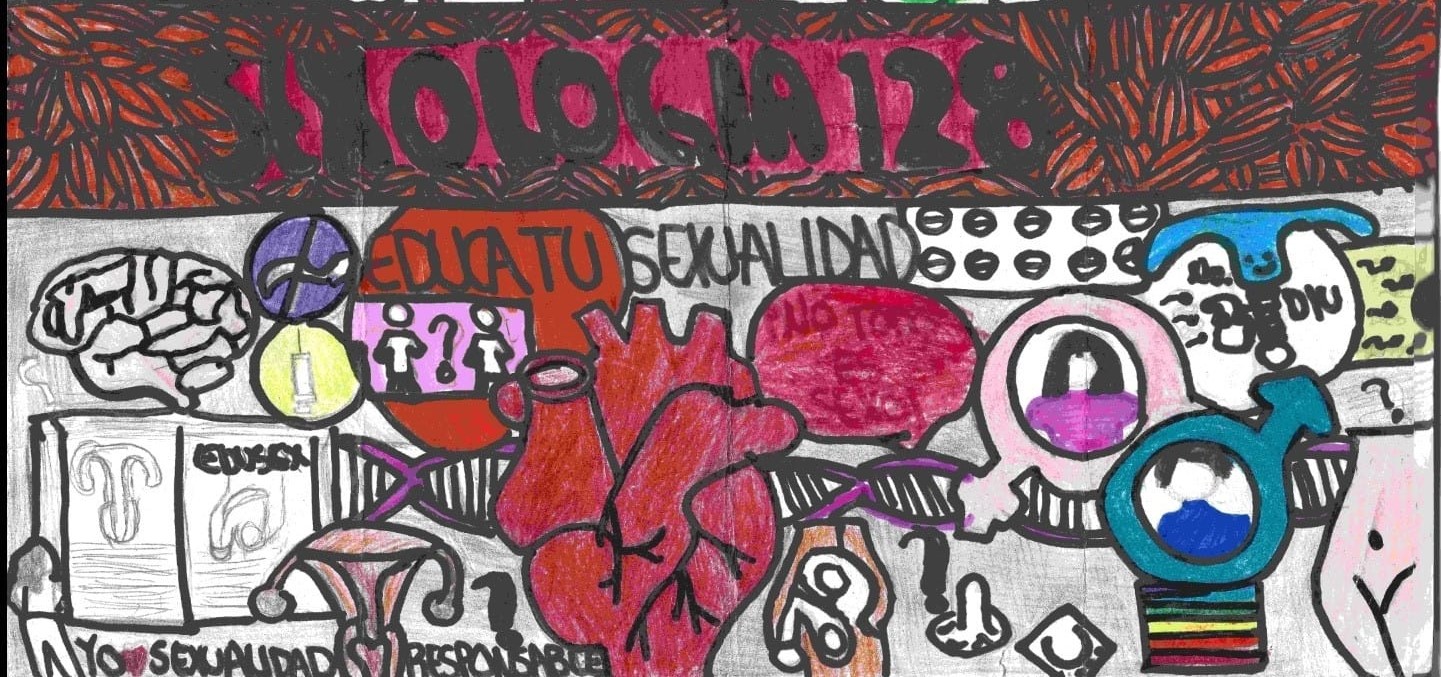 SEXOLOGIA 128
EDUCA TU SEXUALIDAD
¡NO
SEXO!
DIU
?
?
EDUSEX
?
?
YO ♥ SEXUALIDAD RESPONSABLE